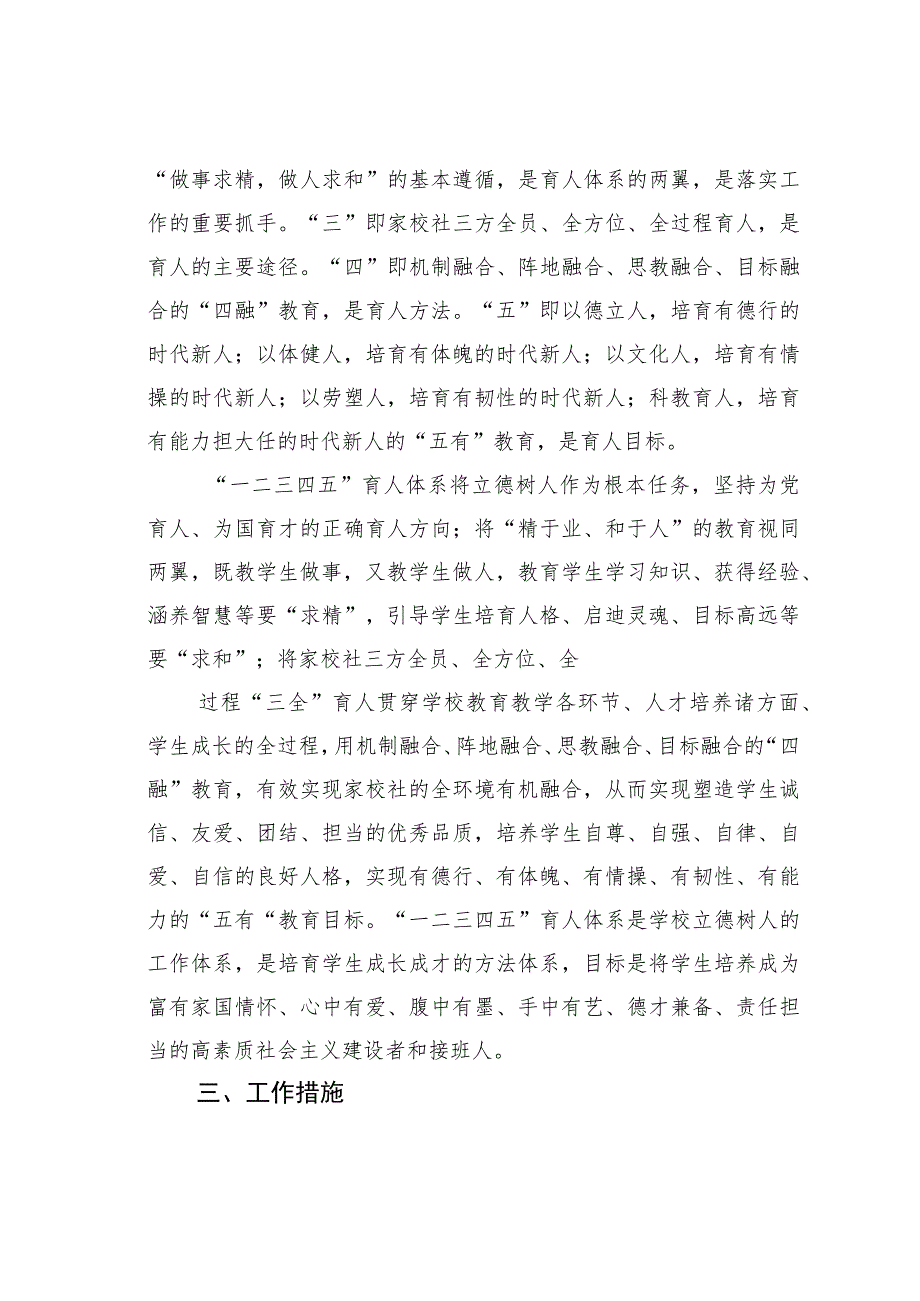 “做事求精，做人求和”的基本遵循，是育人体系的两翼，是落实工
作的重要抓手。“三”即家校社三方全员、全方位、全过程育人，是
育人的主要途径。“四”即机制融合、阵地融合、思教融合、目标融
合的“四融”教育，是育人方法。“五”即以德立人，培育有德行的
时代新人；以体健人，培育有体魄的时代新人；以文化人，培育有情
操的时代新人；以劳塑人，培育有韧性的时代新人；科教育人，培育
有能力担大任的时代新人的“五有”教育，是育人目标。
“一二三四五”育人体系将立德树人作为根本任务，坚持为党
育人、为国育才的正确育人方向；将“精于业、和于人”的教育视同
两翼，既教学生做事，又教学生做人，教育学生学习知识、获得经验、
涵养智慧等要“求精”，引导学生培育人格、启迪灵魂、目标高远等
要“求和”；将家校社三方全员、全方位、全
过程“三全”育人贯穿学校教育教学各环节、人才培养诸方面、
学生成长的全过程，用机制融合、阵地融合、思教融合、目标融合的“四
融”教育，有效实现家校社的全环境有机融合，从而实现塑造学生诚
信、友爱、团结、担当的优秀品质，培养学生自尊、自强、自律、自
爱、自信的良好人格，实现有德行、有体魄、有情操、有韧性、有能
力的“五有“教育目标。“一二三四五”育人体系是学校立德树人的
工作体系，是培育学生成长成才的方法体系，目标是将学生培养成为
富有家国情怀、心中有爱、腹中有墨、手中有艺、德才兼备、责任担
当的高素质社会主义建设者和接班人。
三、工作措施